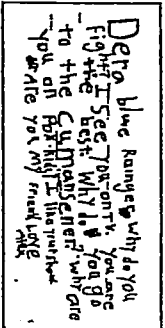 Dera blue Rainges why do you
fight I see you on tv. you are
- the best. why do you go
to the cumansenter? why are
- you on I like your show
are you my friend LOVE